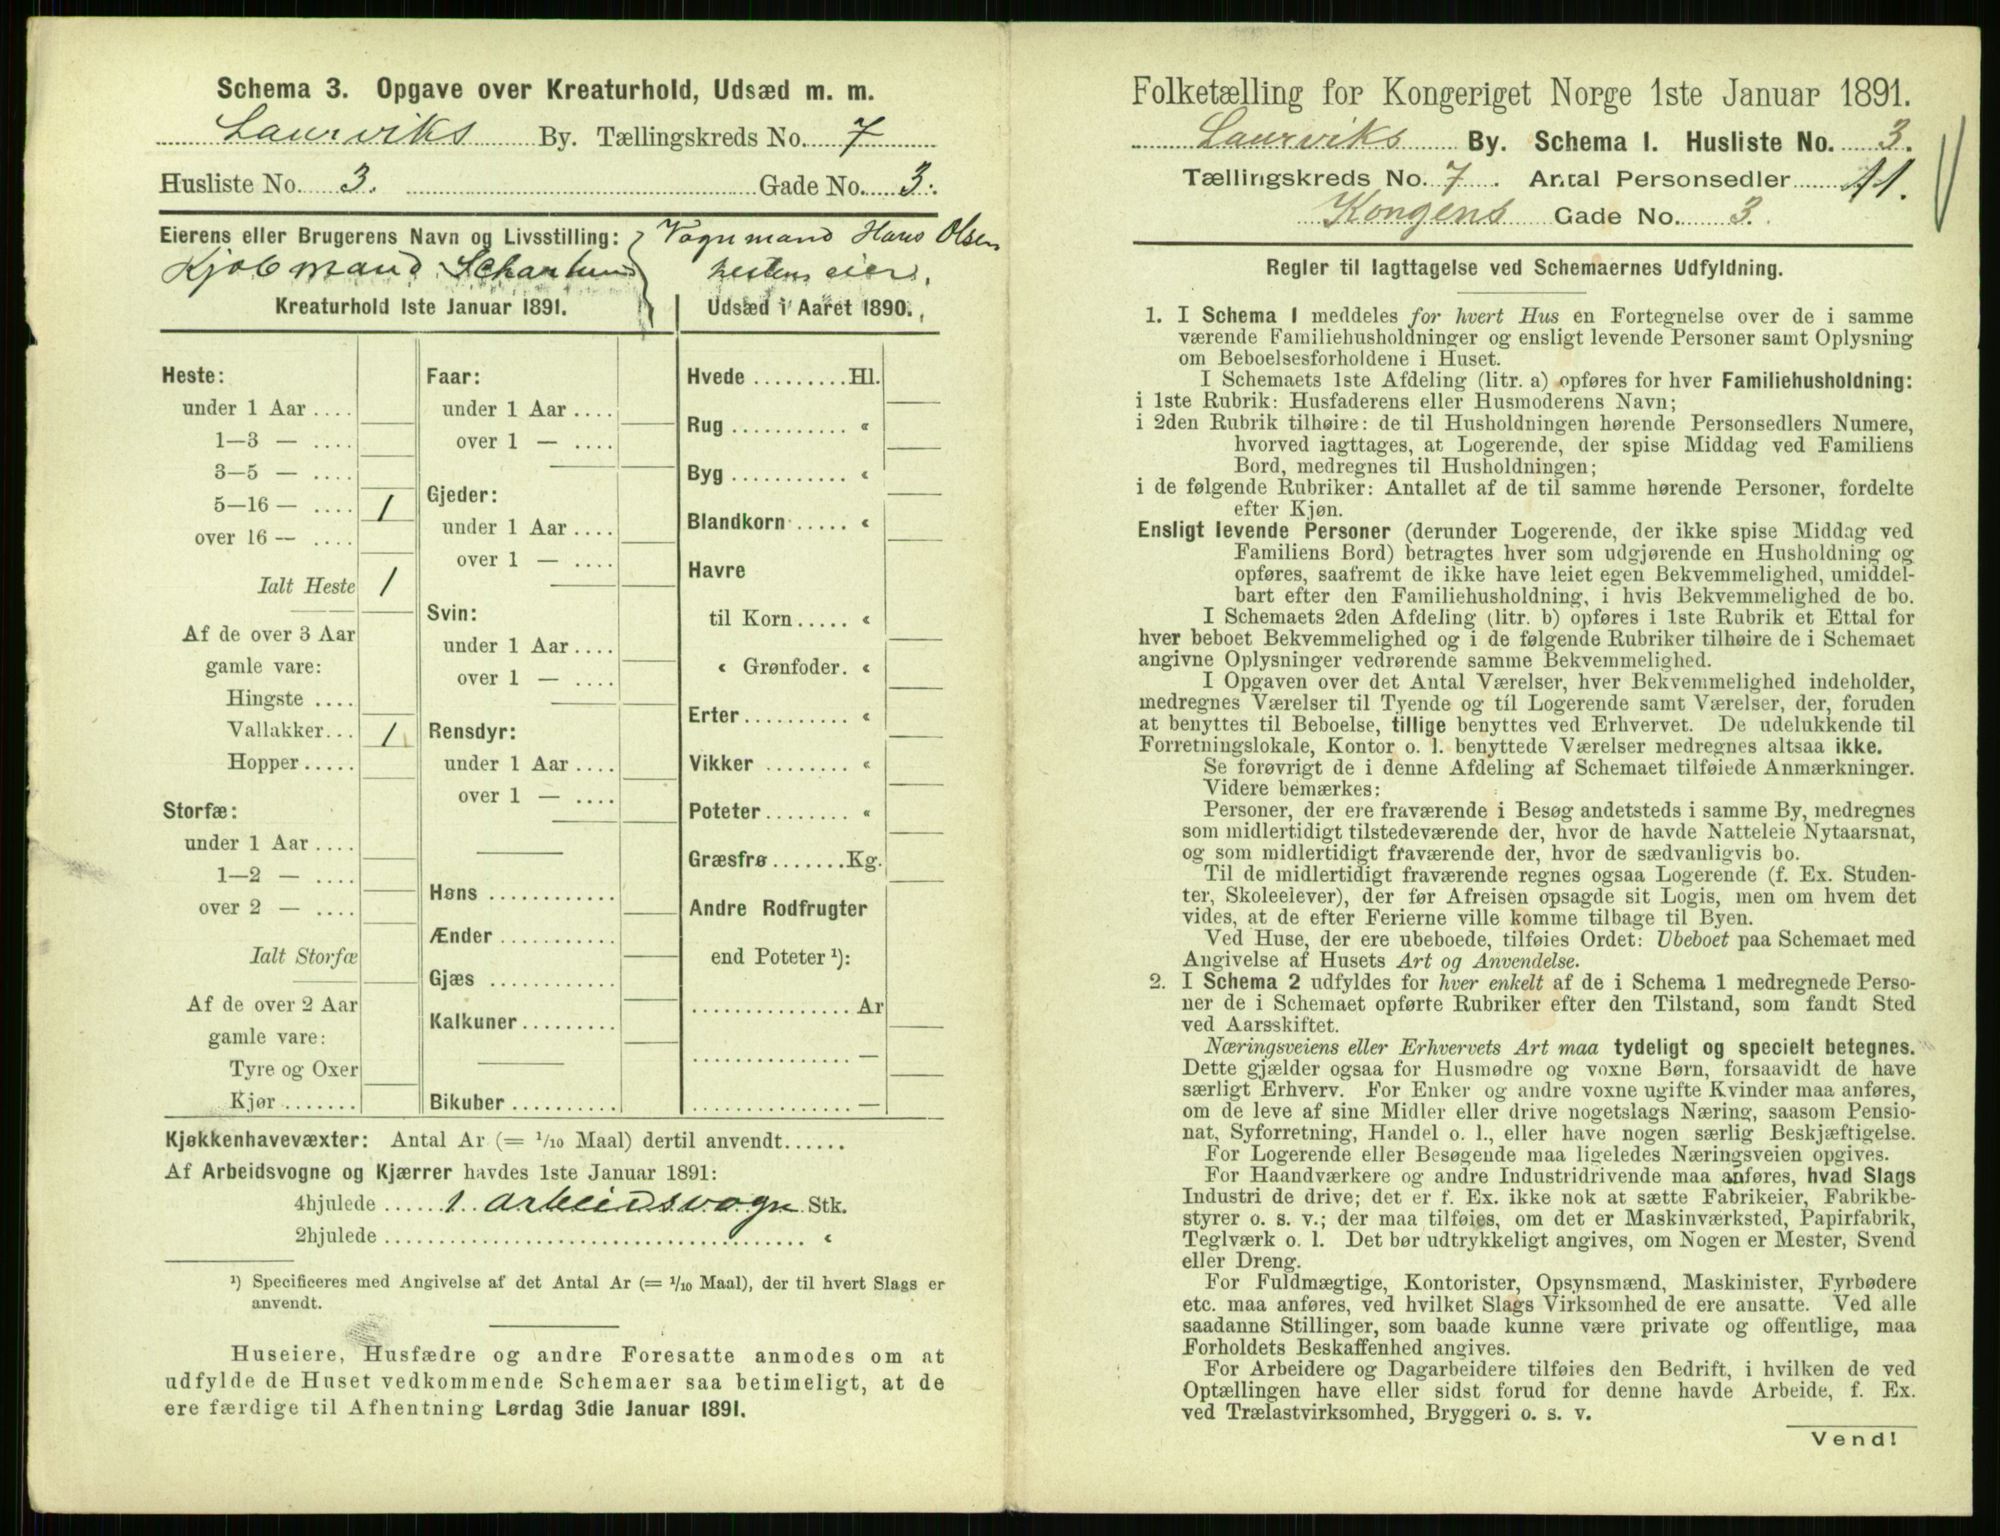 Schema 3. Opgave over Kreaturhold, Udsæd m. m.
Laurviks By. Tællingskreds No. 7
Husliste No. 3. Gade No. 3.
Eierens eller Brugerens Navn og Livsstilling: Vognmand Hans Olsen
Kjøbmand hestens eier.
Kreaturhold 1ste Januar 1891. Udsæd i Aaret 1890.
Heste: Faar: Hvede .........Hl.
under 1 Aar .... under 1 Aar .... Rug ........... «
1—3 — .... over 1 — ....
3—5 — .... Byg ........... «
5—16 — .... 1 Gjeder:
over 16 — .... under 1 Aar .... Blandkorn ..... «
over 1 — ....
Ialt Heste 1 Havre
Svin:
Af de over 3 Aar under 1 Aar .... til Korn ..... «
gamle vare: over 1 — .... « Grønfoder. «
Hingste ....
Vallakker... 1 Rensdyr: Erter .......... «
Hopper ..... under 1 Aar .... Vikker ........ «
over 1 — ....
Storfæ: Poteter ........ «
under 1 Aar ....
1—2 — .... Græsfrø .......Kg.
over 2 — .... Høns ............ Andre Rodfrugter
Ænder ...........
Ialt Storfæ end Poteter ¹):
Gjæs ............
Af de over 2 Aar ............... Ar
gamle vare: Kalkuner.........
Tyre og Oxer ............... —
Kjør ....... Bikuber .......... ............... —
Kjøkkenhavevæxter: Antal Ar (= 1/10 Maal) dertil anvendt......
Af Arbeidsvogne og Kjærrer havdes 1ste Januar 1891:
4hjulede ...... 1 arbeidsvogn Stk.
2hjulede ...................................... «
¹) Specificeres med Angivelse af det Antal Ar (= 1/10 Maal), der til hvert Slags er
anvendt.
Huseiere, Husfædre og andre Foresatte anmodes om at
udfylde de Huset vedkommende Schemaer saa betimeligt, at de
ere færdige til Afhentning Lørdag 3die Januar 1891.
Folketælling for Kongeriget Norge 1ste Januar 1891.
Laurviks By. Schema I. Husliste No. 3.
Tællingskreds No. 7. Antal Personsedler 11.
Kongens Gade No. 3.
Regler til Iagttagelse ved Schemaernes Udfyldning.
1. I Schema I meddeles for hvert Hus en Fortegnelse over de i samme
værende Familiehusholdninger og ensligt levende Personer samt Oplysning
om Beboelsesforholdene i Huset.
I Schemaets 1ste Afdeling (litr. a) opføres for hver Familiehusholdning:
i 1ste Rubrik: Husfaderens eller Husmoderens Navn;
i 2den Rubrik tilhøire: de til Husholdningen hørende Personsedlers Numere,
hvorved iagttages, at Logerende, der spise Middag ved Familiens
Bord, medregnes til Husholdningen;
i de følgende Rubriker: Antallet af de til samme hørende Personer, fordelte
efter Kjøn.
Ensligt levende Personer (derunder Logerende, der ikke spise Middag ved
Familiens Bord) betragtes hver som udgjørende en Husholdning og
opføres, saafremt de ikke have leiet egen Bekvemmelighed, umiddel-
bart efter den Familiehusholdning, i hvis Bekvemmelighed de bo.
I Schemaets 2den Afdeling (litr. b) opføres i 1ste Rubrik et Ettal for
hver beboet Bekvemmelighed og i de følgende Rubriker tilhøire de i Schemaet
angivne Oplysninger vedrørende samme Bekvemmelighed.
I Opgaven over det Antal Værelser, hver Bekvemmelighed indeholder,
medregnes Værelser til Tyende og til Logerende samt Værelser, der, foruden
at benyttes til Beboelse, tillige benyttes ved Erhvervet. De udelukkende til
Forretningslokale, Kontor o. l. benyttede Værelser medregnes altsaa ikke.
Se forøvrigt de i denne Afdeling af Schemaet tilføiede Anmærkninger.
Videre bemærkes:
Personer, der ere fraværende i Besøg andetsteds i samme By, medregnes
som midlertidigt tilstedeværende der, hvor de havde Natteleie Nytaarsnat,
og som midlertidigt fraværende der, hvor de sædvanligvis bo.
Til de midlertidigt fraværende regnes ogsaa Logerende (f. Ex. Studen-
ter, Skoleelever), der før Afreisen opsagde sit Logis, men om hvem det
vides, at de efter Ferierne ville komme tilbage til Byen.
Ved Huse, der ere ubeboede, tilføies Ordet: Ubeboet paa Schemaet med
Angivelse af Husets Art og Anvendelse.
2. I Schema 2 udfyldes for hver enkelt af de i Schema 1 medregnede Perso-
ner de i Schemaet opførte Rubriker efter den Tilstand, som fandt Sted
ved Aarsskiftet.
Næringsveiens eller Erhvervets Art maa tydeligt og specielt betegnes.
Dette gjælder ogsaa for Husmødre og voxne Børn, forsaavidt de have
særligt Erhverv. For Enker og andre voxne ugifte Kvinder maa anføres,
om de leve af sine Midler eller drive nogetslags Næring, saasom Pensio-
nat, Syforretning, Handel o. l., eller have nogen særlig Beskjæftigelse.
For Logerende eller Besøgende maa ligeledes Næringsveien opgives.
For Haandværkere og andre Industridrivende maa anføres, hvad Slags
Industri de drive; det er f. Ex. ikke nok at sætte Fabrikeier, Fabrikbe-
styrer o. s. v.; der maa tilføies, om det er Maskinværksted, Papirfabrik,
Teglværk o. l. Det bør udtrykkeligt angives, om Nogen er Mester, Svend
eller Dreng.
For Fuldmægtige, Kontorister, Opsynsmænd, Maskinister, Fyrbødere
etc. maa anføres, ved hvilket Slags Virksomhed de ere ansatte. Ved alle
saadanne Stillinger, som baade kunne være private og offentlige, maa
Forholdets Beskaffenhed angives.
For Arbeidere og Dagarbeidere tilføies den Bedrift, i hvilken de ved
Optællingen have eller sidst forud for denne havde Arbeide, f. Ex.
ved Trælastvirksomhed, Bryggeri o. s. v.
Vend!